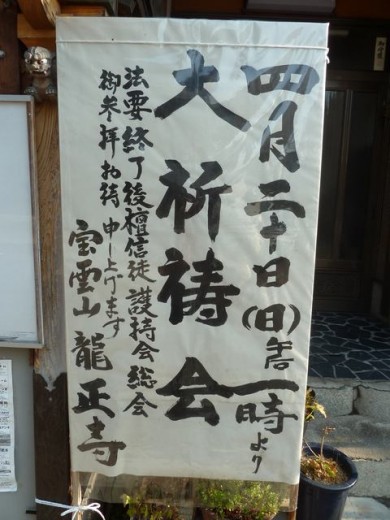 四月二十日(日)午后一時より
大祈祷会
法要終了後檀信徒護持会総会
御参拝お待申し上げます
宝雲山龍正寺